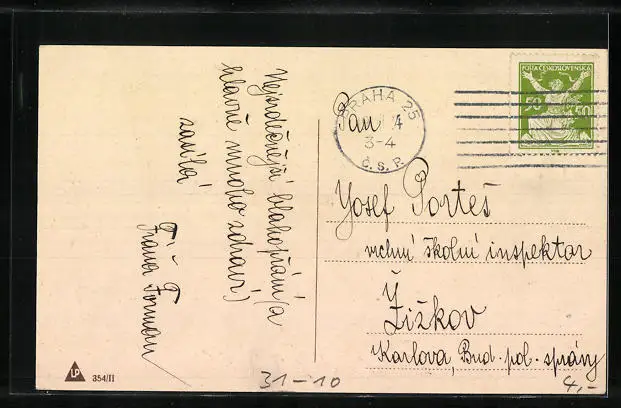 Nejsrdečnější blahopřání (a
hlavně mnoho zdraví)
zasílá
Fráňa Forman
PRAHA 25
3-4
Č.S.P.
POŠTA ČESKOSLOVENSKÁ
50
50
Pan
Josef Porteš
vrchní školní inspektor
Žižkov
Karlova, Bud. pol. správy
LP
354/II
31-10
4,-